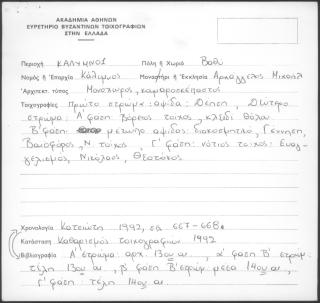 ΑΚΑΔΗΜΙΑ ΑΘΗΝΩΝ
ΕΥΡΕΤΗΡΙΟ ΒΥΖΑΝΤΙΝΩΝ ΤΟΙΧΟΓΡΑΦΙΩΝ
ΣΤΗΝ ΕΛΛΑΔΑ
Περιοχή ΚΑΛΥΜΝΟΣ Πόλη ή Χωριό Βαθύ
Νομός ή Επαρχία Κάλυμνος Μοναστήρι ή Εκκλησία Αρχάγγελος Μιχαήλ
Αρχιτεκτ. τύπος Μονόχωρος, καμαροσκέπαστος
Τοιχογραφίες Πρώτο στρώμα: αψίδα: Δέηση, Δεύτερο
στρώμα: Α' φάση βόρειος τοίχος, κλειδί θόλου
Β' φάση: μέτωπο αψίδας: διάκοσμηση, Γέννηση,
Βαϊοφόρος, Ν τοίχος, Γ' φάση: νότιος τοίχος: Ευαγ-
γελισμός, Νικόλαος, Θεοτόκος
Χρονολογία Κατσιώτη 1992, σσ 667-668
Κατάσταση Καθαρισμός τοιχογραφιών 1992
Βιβλιογραφία Α' στρώμα: αρχ. 13ου αι, α' φάση Β' στρωμ.
τέλη 13ου αι, β φάση Β' στρωμ μέσα 14ου αι,
Γ' φάση: τέλη 14ου αι.